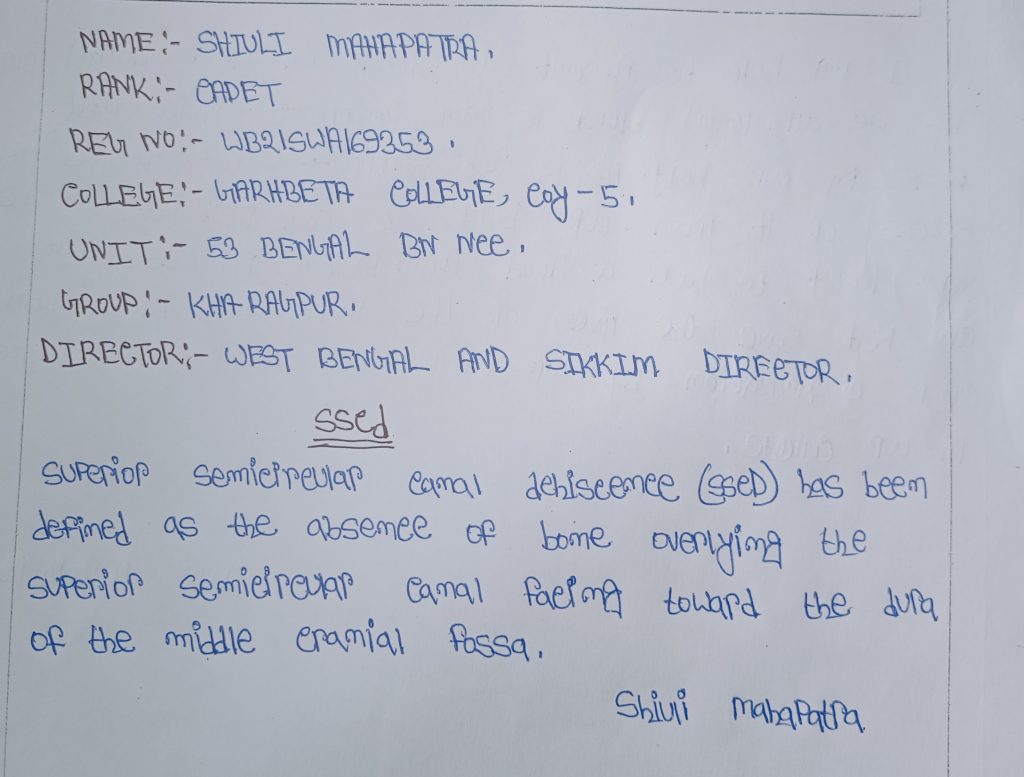 NAME:- SHIULI MAHAPATRA.
RANK:- CADET
REG NO:- WB21SWA169353.
COLLEGE:- GARHBETA COLLEGE, coy-5.
UNIT:- 53 BENGAL BN NCC.
GROUP:- KHARAGPUR.
DIRECTOR:- WEST BENGAL AND SIKKIM DIRECTOR.
SSCd
superior semicircular canal dehiscence (SSCD) has been
defined as the absence of bone overlying the
superior semicircular canal facing toward the dura
of the middle cranial fossa.
Shiuli Mahapatra